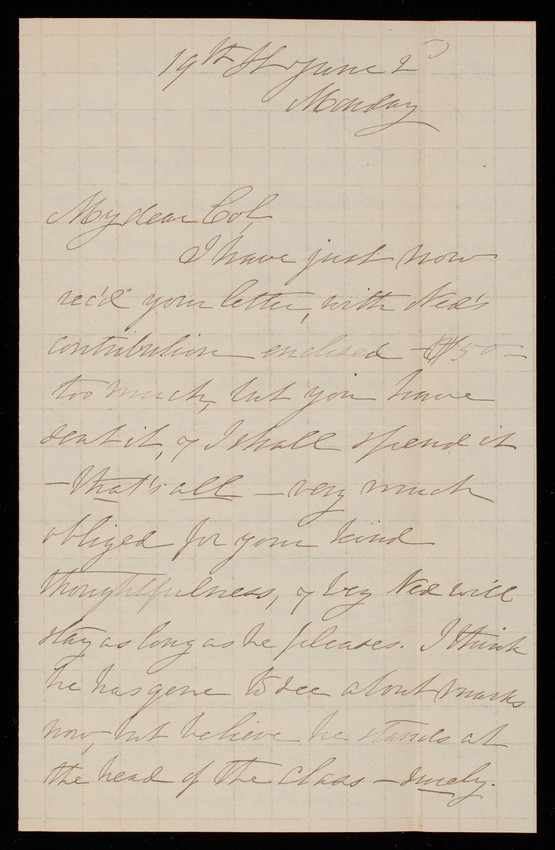 19th St. June 2d
Monday
My dear Col,
I have just now
rec'd your letter, with Ned's
contribution enclosed - $50 -
too much, but you have
sent it, & I shall spend it
- that's all - very much
obliged for your kind
thoughtfulness, & beg Ned will
stay as long as he pleases. I think
he has gone to see about marks
now, but believe he stands at
the head of the class - surely.